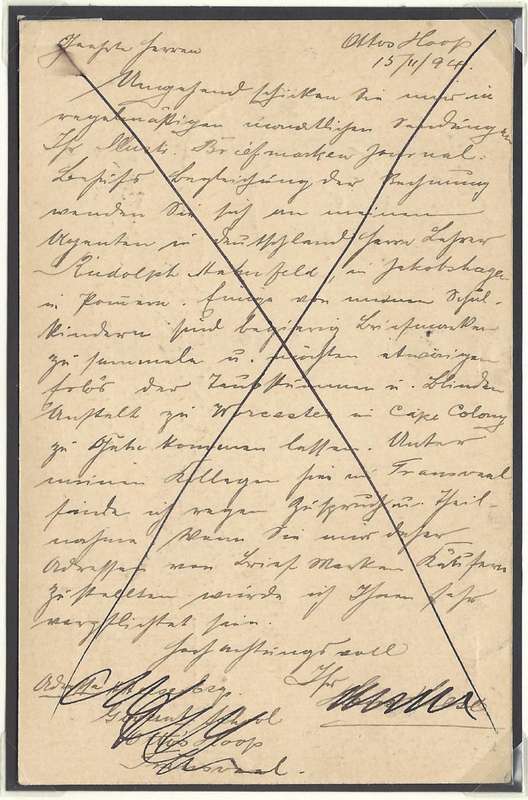 Geehrte Herren
Ottos Hoop
15/11/94.
Umgehend schicken Sie mir in
regelmäßigen monatlichen Sendungen
Ihr Illustr. Briefmarken Journal.
Behufs Begleichung der Rechnung
wenden Sie sich an meinen
Agenten in Deutschland Herrn Lehrer
Rudolph in Jakobshagen
in Pomern. Einige von meinen Schul-
kindern sind begierig Briefmarken
zu sammeln u. möchten etwaigen
Erlös der Taubstummen u. Blinden
Anstalt zu Worcester in Cape Colony
zu Gute kommen lassen. Unter
meinen Kollegen hier in Transvaal
finde ich regen Zuspruch u. Theil-
nahme Wenn Sie mir daher
Adressen von Brief Marken Käufern
zustellten würde ich Ihnen sehr
verpflichtet sein.
Hochachtungsvoll
Ihr
Ottos Hoop
Transvaal.